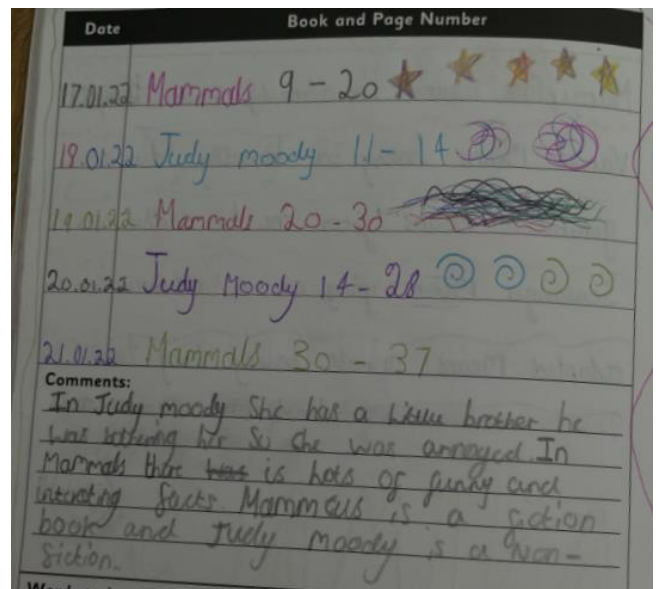 Date Book and Page Number
17.01.22 Mammals 9 - 20
19.01.22 Judy moody 11 - 14
19.01.22 Mammals 20 - 30
20.01.22 Judy Moody 14 - 28
21.01.22 Mammals 30 - 37
Comments:
In Judy moody She has a little brother he
was bothering her So She was annoyed. In
Mammals there is lots of funny and
facts. Mammals is a fiction
book and Judy moody is a non-
fiction.